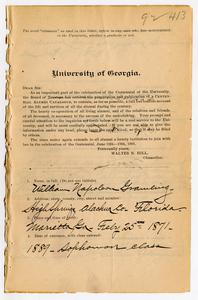 92 413
The word "alumnus" as used in this letter, refers to any man who has matriculated
in the University, whether a graduate or not.
University of Georgia.
DEAR SIR:
As an important part of the celebration of the Centennial of the University, the
Board of Trustees has ordered the preparation and publication of a CENTEN-
NIAL ALUMNI CATALOGUE, to contain, as far as possible, a full but concise account
of the life and services of all the alumni during the century.
The hearty co-operation of all living alumni, and of the relatives and friends
of all deceased, is necessary to the success of the undertaking. Your prompt and
careful attention to the inquiries will be a real service to the Univer-
sity, and will be sincerely appreciated. If you are not able to give the
information under any head, please leave the space open, so that it may be filled
by others.
The same notice again extends to all alumni a hearty invitation to join with
us in the complete celebration of the Centennial, June
Fraternally yours,
WALTER B. HILL,
Chancellor.
1. Name, in full, (Do not use initials).
William Napoleon Gramling
2. Address, state, county, city, street and number.
High Springs Alachua Co. Florida
3. Place and date of birth.
Marietta Ga Feby 25th 1871-
4. Date of entrance, with class entered.
1889- Sophomore class